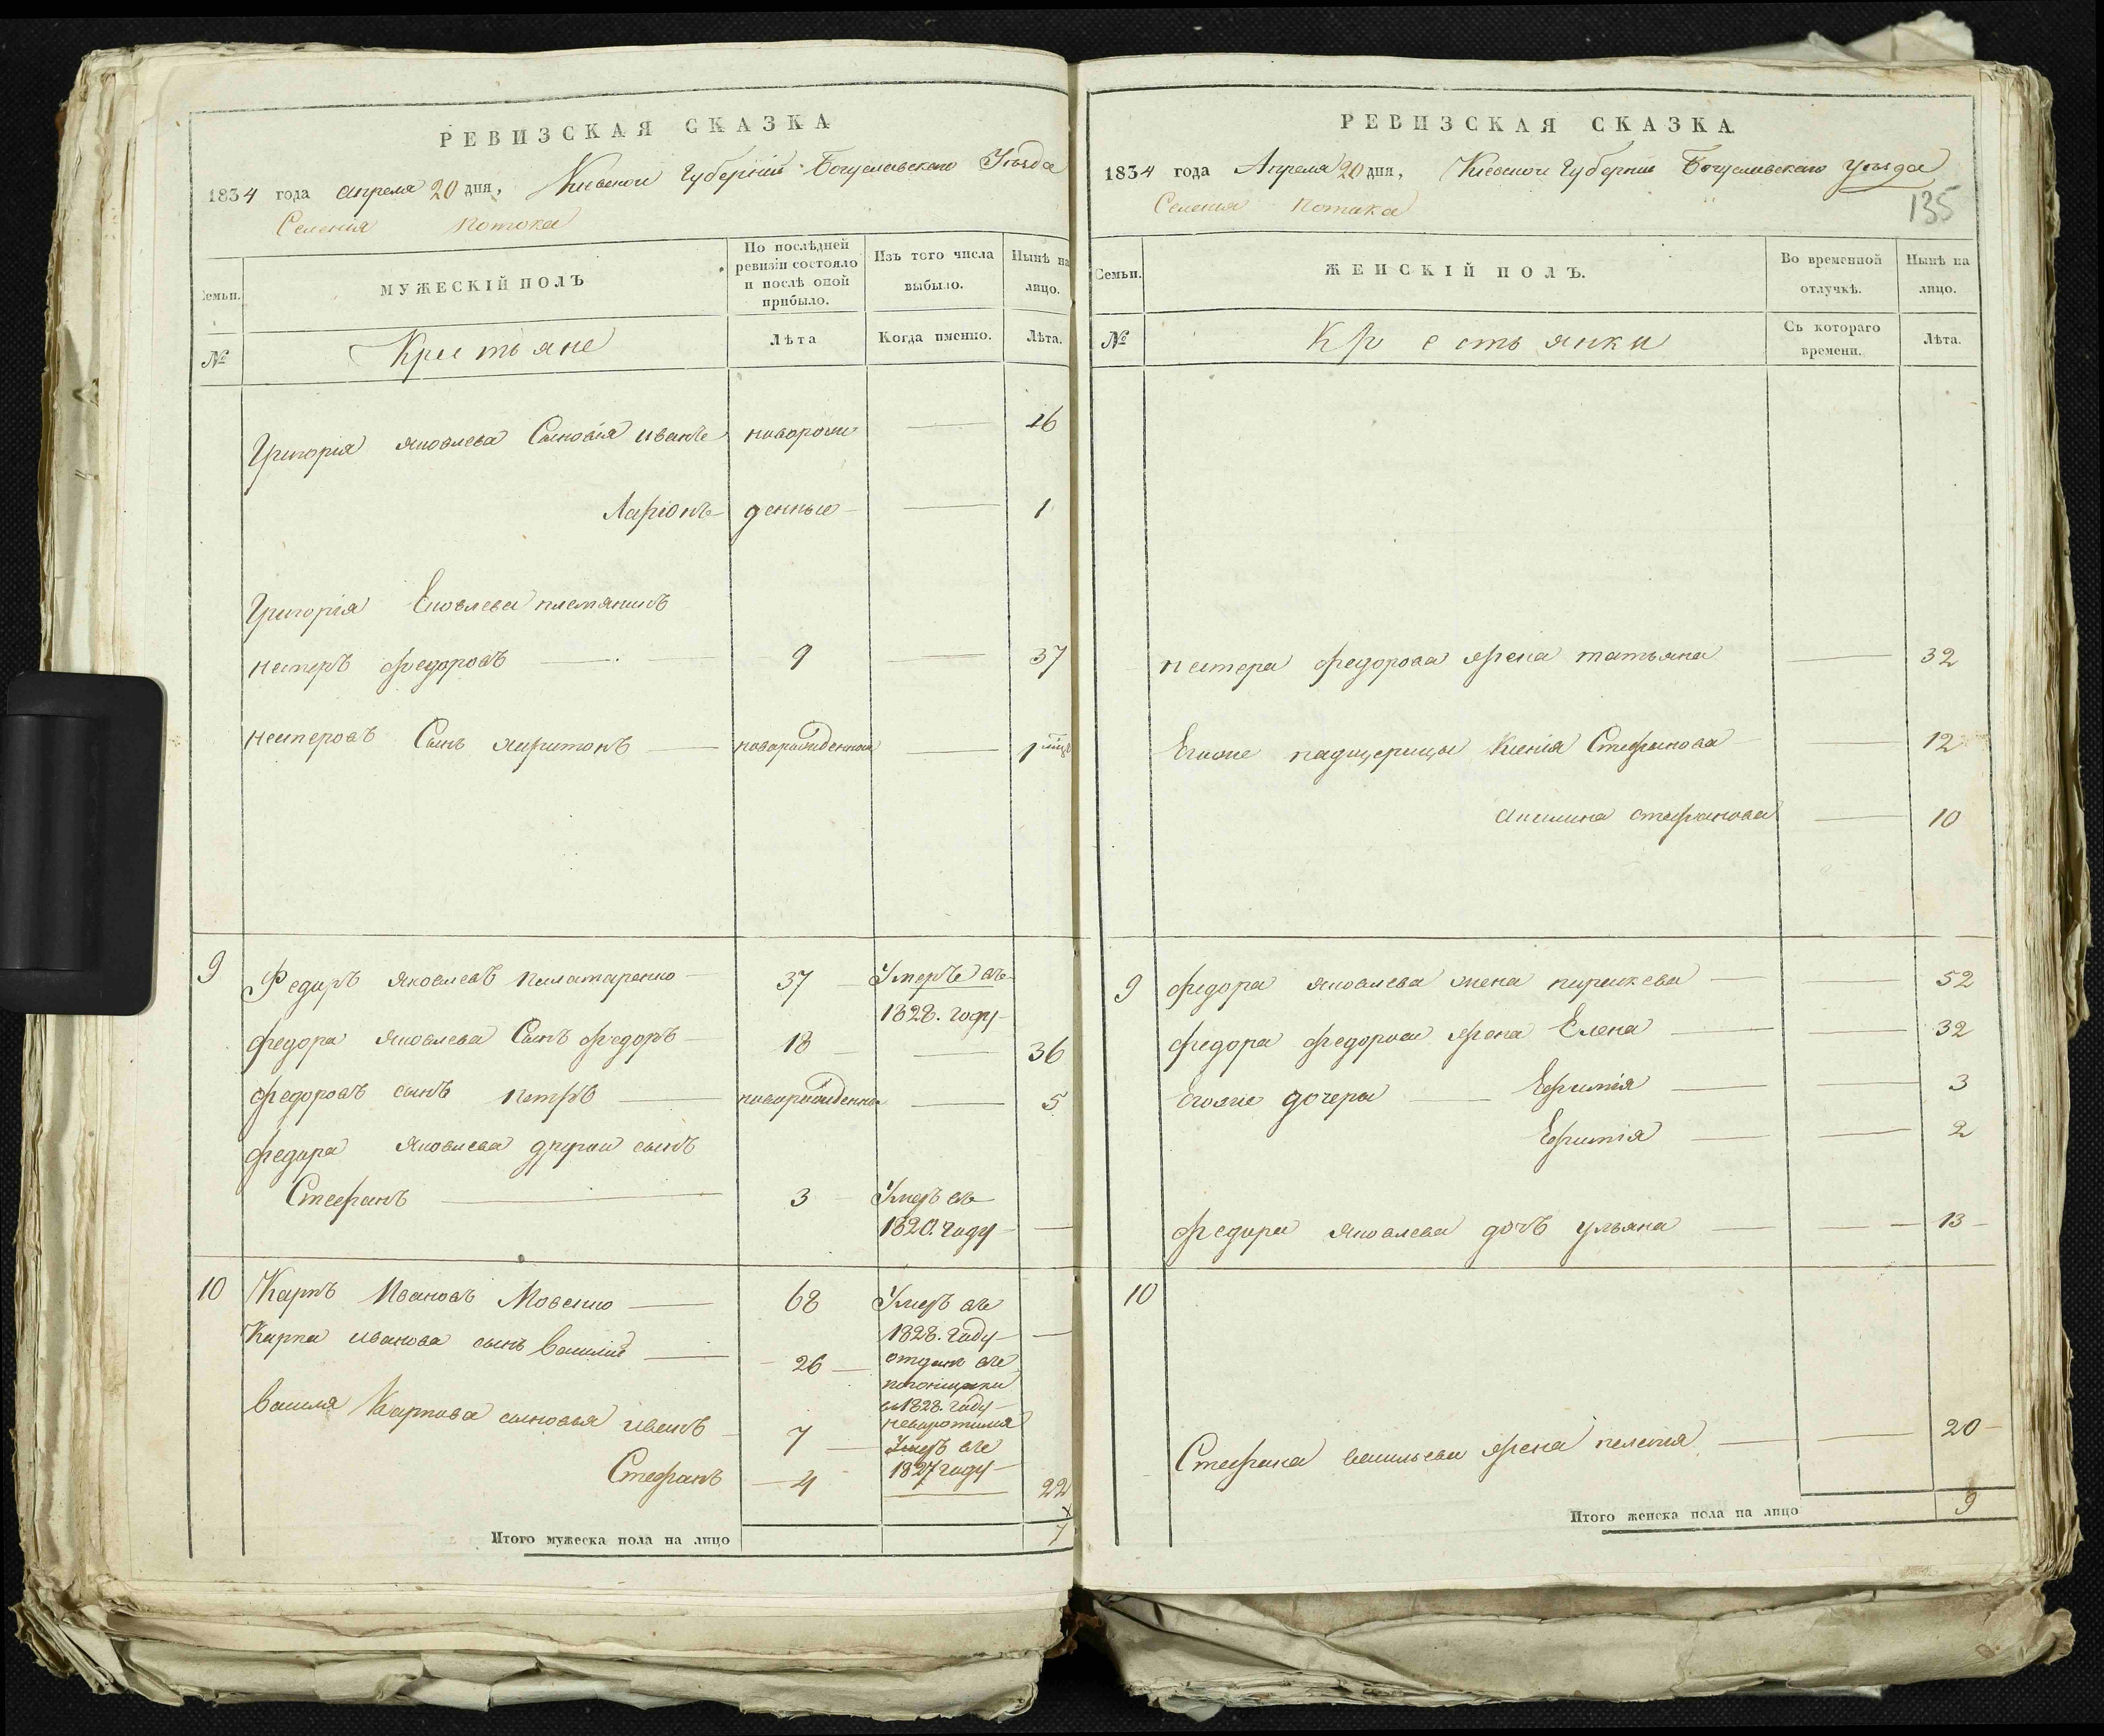 РЕВИЗСКАЯ СКАЗКА
1834 года апреля 20 дня, Киевской Губернии Богуславскаго Уѣзда
Селенія Потока
Семьи.
МУЖЕСКІЙ ПОЛЪ
По послѣдней ревизіи состояло и послѣ оной прибыло.
Изъ того числа выбыло.
Нынѣ на лицо.
№
Крестьяне
Лѣта
Когда именно.
Лѣта.
Григорія Яковлева Сыновія иванъ новорож 16
Ларіонъ денные 1
Григорія Яковлева племяникъ
нестеръ федоровъ 9 37
нестеровъ Сынъ харитонъ новорожденной 1 мцъ
9 Федоръ Яковлевъ 37 Умеръ въ
1828. году
федора Яковлева Сынъ федоръ 18 36
федоровъ сынъ петръ новорожденны 5
федора Яковлева другой сынъ
Стефанъ 3 Умеръ въ
1820. году
10 Карпъ Ивановъ Мовенко 68 Умеръ въ
1828. году
Карпа иванова сынъ василій 26 отданъ въ
погонщики
в 1828. году
невозвратился
василя Карпова сыновья иванъ 7 Умеръ въ
1827 году
Стефанъ 4 22
Итого мужеска пола на лицо 7
РЕВИЗСКАЯ СКАЗКА
1834 года Апреля 20 дня, Киевской Губерніи Богуславскаго уѣзда
135
Селенія Потока
Семьи.
ЖЕНСКІЙ ПОЛЪ.
Во временной отлучкѣ.
Нынѣ на лицо.
№
Крестьянки
Съ котораго времени.
Лѣта.
нестера федорова жена татьяна 32
Егоже падщерицы Ксенія Стефанова 12
акилина стефанова 10
9 федора яковлева жена 52
федора федорова жена Елена 32
Егоже дочера Ефимія 3
Ефимія 2
федора Яковлева дочъ ульяна 13
10
Стефана васильева жена пелагія 20
Итого женска пола на лицо 9